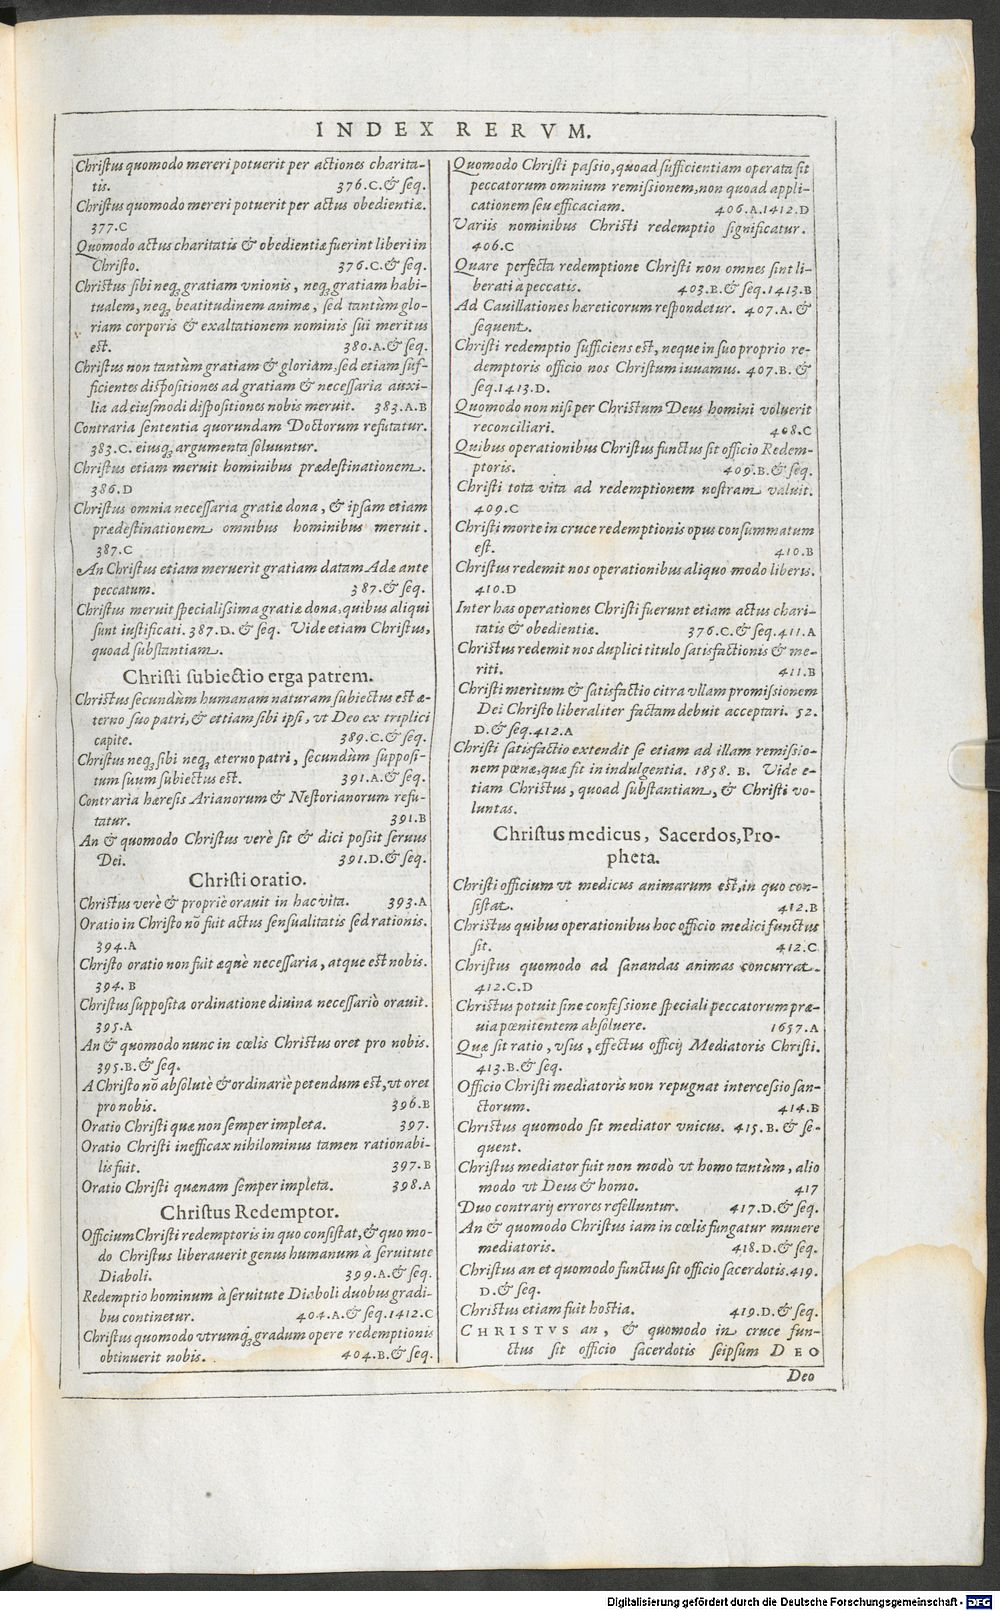 INDEX RERVM.
Christus quomodo mereri potuerit per actiones charita-
tis. 376.C.& seq.
Christus quomodo mereri potuerit per actus obedientiæ.
377.C
Quomodo actus charitatis & obedientiæ fuerint liberi in
Christo. 376.C.& seq.
Christus sibi neq; gratiam vnionis, neq; gratiam habi-
tualem, neq; beatitudinem animæ, sed tantùm glo-
riam corporis & exaltationem nominis sui meritus
est. 380.A.& seq.
Christus non tantùm gratiam & gloriam, sed etiam suf-
ficientes dispositiones ad gratiam & necessaria auxi-
lia ad eiusmodi dispositiones nobis meruit. 383.A.B
Contraria sententia quorundam Doctorum refutatur.
383.C. eiusq; argumenta soluuntur.
Christus etiam meruit hominibus prædestinationem.
386.D
Christus omnia necessaria gratiæ dona, & ipsam etiam
prædestinationem omnibus hominibus meruit.
387.C
An Christus etiam meruerit gratiam datam Adæ ante
peccatum. 387.& seq.
Christus meruit specialissima gratiæ dona, quibus aliqui
sunt iustificati. 387.D. & seq. Vide etiam Christus,
quoad substantiam.
Christi subiectio erga patrem.
Christus secundùm humanam naturam subiectus est æ-
terno suo patri, & ettiam sibi ipsi, vt Deo ex triplici
capite. 389.C.& seq.
Christus neq; sibi neq; æterno patri, secundùm supposi-
tum suum subiectus est. 391.A.& seq.
Contraria hæresis Arianorum & Nestorianorum refu-
tatur. 391.B
An & quomodo Christus verè sit & dici possit seruus
Dei. 391.D.& seq.
Christi oratio.
Christus verè & propriè orauit in hac vita. 393.A
Oratio in Christo nō fuit actus sensualitatis sed rationis.
394.A
Christo oratio non fuit æquè necessaria, atque est nobis.
394.B
Christus supposita ordinatione diuina necessariò orauit.
395.A
An & quomodo nunc in cœlis Christus oret pro nobis.
395.B.& seq.
A Christo nō absolutè & ordinariè petendum est, vt oret
pro nobis. 396.B
Oratio Christi quæ non semper impleta. 397.
Oratio Christi inefficax nihilominus tamen rationabi-
lis fuit. 397.B
Oratio Christi quænam semper impleta. 398.A
Christus Redemptor.
Officium Christi redemptoris in quo consistat, & quo mo-
do Christus liberauerit genus humanum à seruitute
Diaboli. 399.A.& seq.
Redemptio hominum à seruitute Diaboli duobus gradi-
bus continetur. 404.A.& seq.1412.C
Christus quomodo vtrumq; gradum opere redemptionis
obtinuerit nobis. 404.B.& seq.
Quomodo Christi passio, quoad sufficientiam operata sit
peccatorum omnium remissionem, non quoad appli-
cationem seu efficaciam. 406.A.1412.D
Variis nominibus Christi redemptio significatur.
406.C
Quare perfecta redemptione Christi non omnes sint li-
berati à peccatis. 403.B.& seq.1413.B
Ad Cauillationes hæreticorum respondetur. 407.A. &
sequent.
Christi redemptio sufficiens est, neque in suo proprio re-
demptoris officio nos Christum iuuamus. 407.B. &
seq.1413.D.
Quomodo non nisi per Christum Deus homini voluerit
reconciliari. 408.C
Quibus operationibus Christus functus sit officio Redem-
ptoris. 409.B.& seq.
Christi tota vita ad redemptionem nostram valuit.
409.C
Christi morte in cruce redemptionis opus consummatum
est. 410.B
Christus redemit nos operationibus aliquo modo liberis.
410.D
Inter has operationes Christi fuerunt etiam actus chari-
tatis & obedientiæ. 376.C.& seq.411.A
Christus redemit nos duplici titulo satisfactionis & me-
riti. 411.B
Christi meritum & satisfactio citra vllam promissionem
Dei Christo liberaliter factam debuit acceptari. 52.
D.& seq.412.A
Christi satisfactio extendit se etiam ad illam remissio-
nem pœnæ, quæ fit in indulgentia. 1858. B. Vide e-
tiam Christus, quoad substantiam, & Christi vo-
luntas.
Christus medicus, Sacerdos, Pro-
pheta.
Christi officium vt medicus animarum est, in quo con-
sistat. 412.B
Christus quibus operationibus hoc officio medici functus
sit. 412.C
Christus quomodo ad sanandas animas concurrat.
412.C.D
Christus potuit sine confessione speciali peccatorum præ-
uia pœnitentem absoluere. 1657.A
Quæ sit ratio, vsus, effectus officij Mediatoris Christi.
413.B.& seq.
Officio Christi mediatoris non repugnat intercessio san-
ctorum. 414.B
Christus quomodo sit mediator vnicus. 415.B. & se-
quent.
Christus mediator fuit non modò vt homo tantùm, alio
modo vt Deus & homo. 417
Duo contrarij errores refelluntur. 417.D.& seq.
An & quomodo Christus iam in cœlis fungatur munere
mediatoris. 418.D.& seq.
Christus an et quomodo functus sit officio sacerdotis. 419.
D.& seq.
Christus etiam fuit hostia. 419.D.& seq.
CHRISTVS an, & quomodo in cruce fun-
ctus sit officio sacerdotis seipsum DEO
Deo
Digitalisierung gefördert durch die Deutsche Forschungsgemeinschaft - DFG